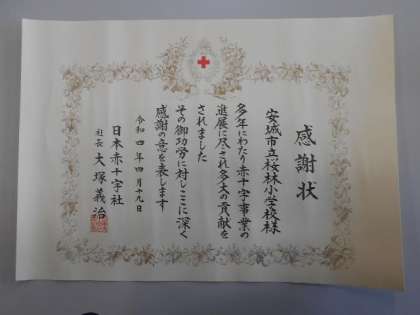 感謝状
安城市立桜林小学校様
多年にわたり赤十字事業の
進展に尽され多大の貢献を
されました
その御功労に対しここに深く
感謝の意を表します
令和四年四月十九日
日本赤十字社
社長 大塚義治